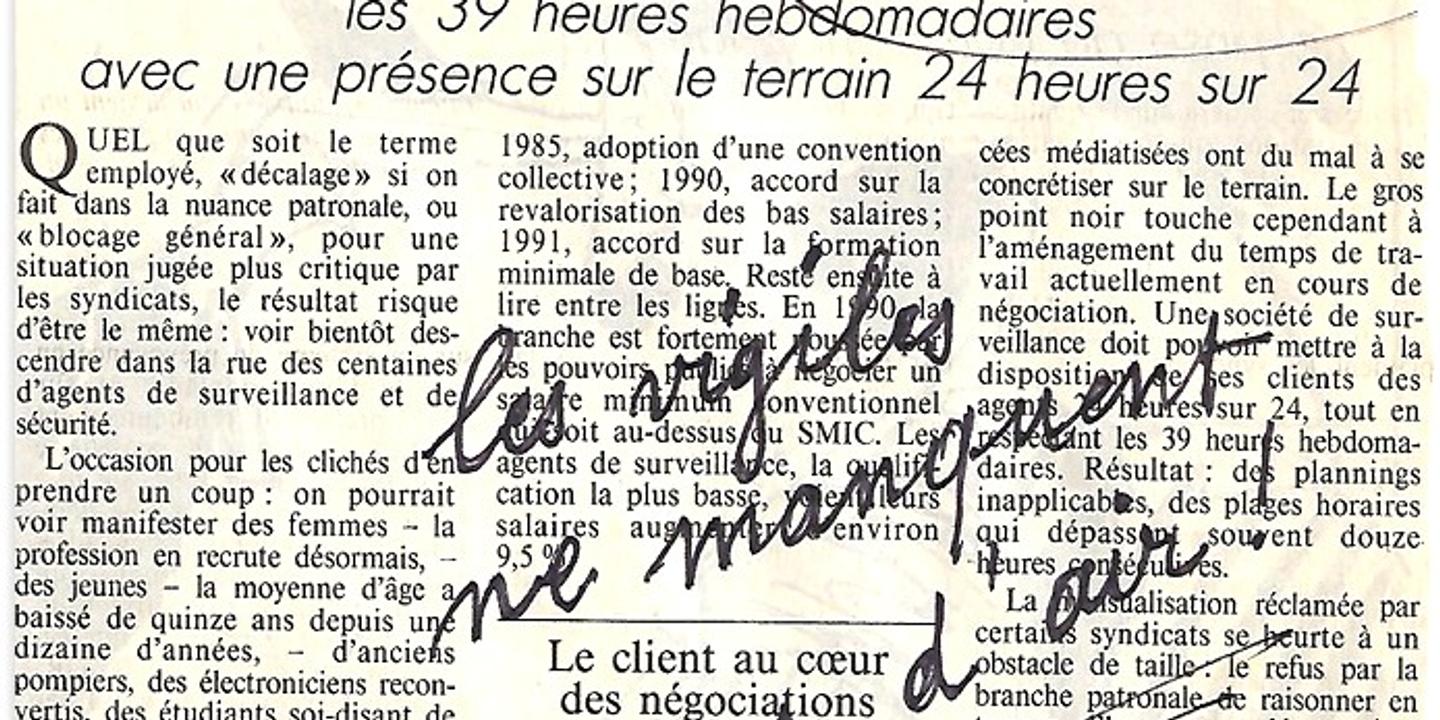 les 39 heures hebdomadaires
avec une présence sur le terrain 24 heures sur 24
QUEL que soit le terme
employé, «décalage» si on
fait dans la nuance patronale, ou
«blocage général», pour une
situation jugée plus critique par
les syndicats, le résultat risque
d'être le même : voir bientôt des-
cendre dans la rue des centaines
d'agents de surveillance et de
sécurité.
L'occasion pour les clichés d'en
prendre un coup : on pourrait
voir manifester des femmes – la
profession en recrute désormais, –
des jeunes – la moyenne d'âge a
baissé de quinze ans depuis une
dizaine d'années, – d'anciens
pompiers, des électroniciens recon-
vertis, des étudiants soi-disant de
1985, adoption d'une convention
collective; 1990, accord sur la
revalorisation des bas salaires;
1991, accord sur la formation
minimale de base. Reste ensuite à
lire entre les lignes. En 1990, la
branche est fortement poussée par
les pouvoirs publics à négocier un
salaire minimum conventionnel
qui soit au-dessus du SMIC. Les
agents de surveillance, la qualifi-
cation la plus basse, voient leurs
salaires augmenter environ
9,5 %
Le client au cœur
des négociations
cées médiatisées ont du mal à se
concrétiser sur le terrain. Le gros
point noir touche cependant à
l'aménagement du temps de tra-
vail actuellement en cours de
négociation. Une société de sur-
veillance doit pouvoir mettre à la
disposition de ses clients des
agents 24 heures sur 24, tout en
respectant les 39 heures hebdoma-
daires. Résultat : des plannings
inapplicables, des plages horaires
qui dépassent souvent douze
heures consécutives.
La mensualisation réclamée par
certains syndicats se heurte à un
obstacle de taille : le refus par la
branche patronale de raisonner en
les vigiles
ne manquent
d'air !